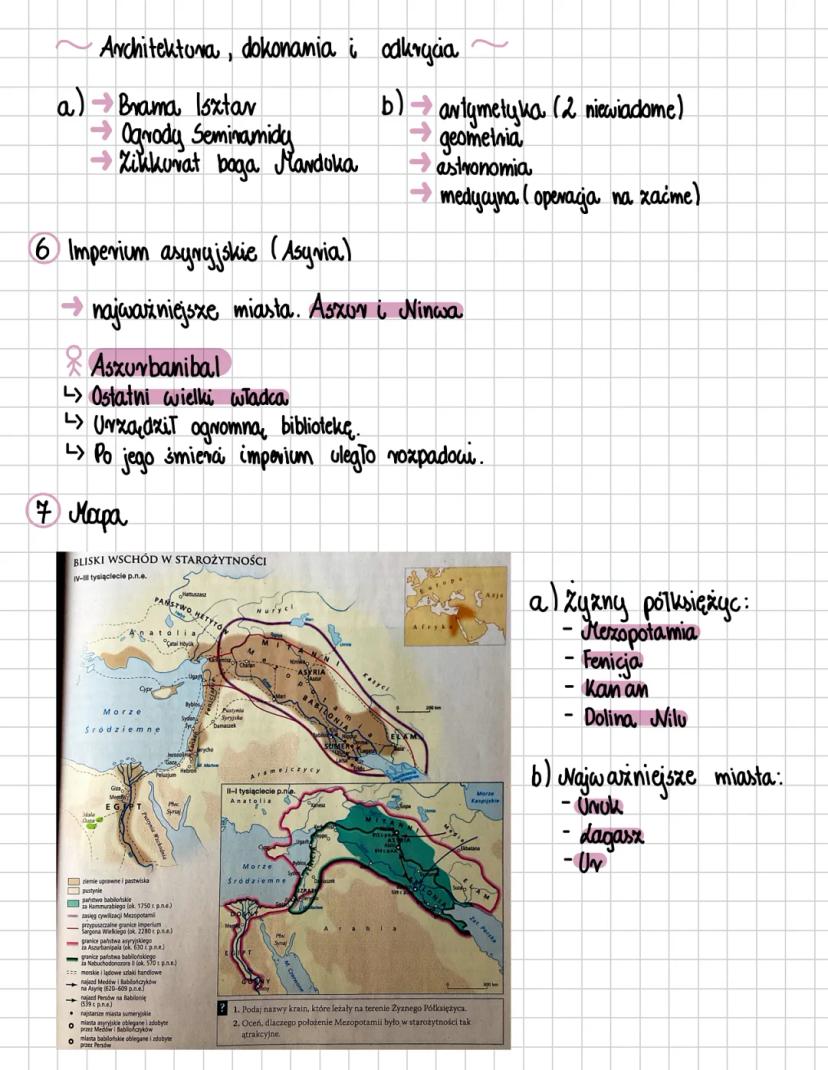 ~ Architektura, dokonania i odkrycia ~
a) → Brama Isztar
→ Ogrody Semiramidy
→ Zikkurat boga Marduka
b) → artymetyka (2 niewiadome)
→ geometria
→ astronomia
→ medycyna (operacja na zaćmę)
6 Imperium asyryjskie (Asyria)
→ najważniejsze miasta. Aszur i Niniwa
Aszurbanibal
↳ Ostatni wielki władca
↳ Urządził ogromną bibliotekę.
↳ Po jego śmierci imperium uległo rozpadowi.
7 Mapa
BLISKI WSCHÓD W STAROŻYTNOŚCI
IV–III tysiąclecie p.n.e.
Hattuszasz
PAŃSTWO HETYTÓW
Huryci
Europa
Azja
Afryka
Anatolia
Çatal Höyük
MITANNI
Mezopotamia
Niniwa
ASYRIA
Aszur
Kasyci
Ugarit
Cypr
Mari
BABILONIA
200 km
Morze
Śródziemne
Byblos
Pustynia
Syryjska
Sydon
Tyr
Damaszek
ELAM
SUMER
Jerycho
Gaza
M. Martwe
Hebron
Peluzjum
Aramejczycy
Giza
EGIPT
Płw.
Synaj
Pustynia Wschodnia
II–I tysiąclecie p.n.e.
Anatolia
Morze
Kaspijskie
MITANNI
Ugarit
ASYRIA
Ekbatana
Morze
Śródziemne
Byblos
Damaszek
BABILONIA
Suza
ELAM
Arabia
Zat. Perska
EGIPT
Płw.
Synaj
M. Czerwone
300 km
ziemie uprawne i pastwiska
pustynie
państwo babilońskie
za Hammurabiego (ok. 1750 r. p.n.e.)
zasięg cywilizacji Mezopotamii
przypuszczalne granice imperium
Sargona Wielkiego (ok. 2280 r. p.n.e.)
granice państwa asyryjskiego
za Aszurbanipala (ok. 630 r. p.n.e.)
granice państwa babilońskiego
za Nabuchodonozora II (ok. 570 r. p.n.e.)
morskie i lądowe szlaki handlowe
najazd Medów i Babilończyków
na Asyrię (620–609 p.n.e.)
najazd Persów na Babilonię
(539 r. p.n.e.)
najstarsze miasta sumeryjskie
miasta asyryjskie oblegane i zdobyte
przez Medów i Babilończyków
miasta babilońskie oblegane i zdobyte
przez Persów
? 1. Podaj nazwy krain, które leżały na terenie Żyznego Półksiężyca.
2. Oceń, dlaczego położenie Mezopotamii było w starożytności tak
atrakcyjne.
a) Żyzny półksiężyc:
- Mezopotamia
- Fenicja
- Kanaan
- Dolina Nilu
b) Najważniejsze miasta:
- Uruk
- Lagasz
- Ur